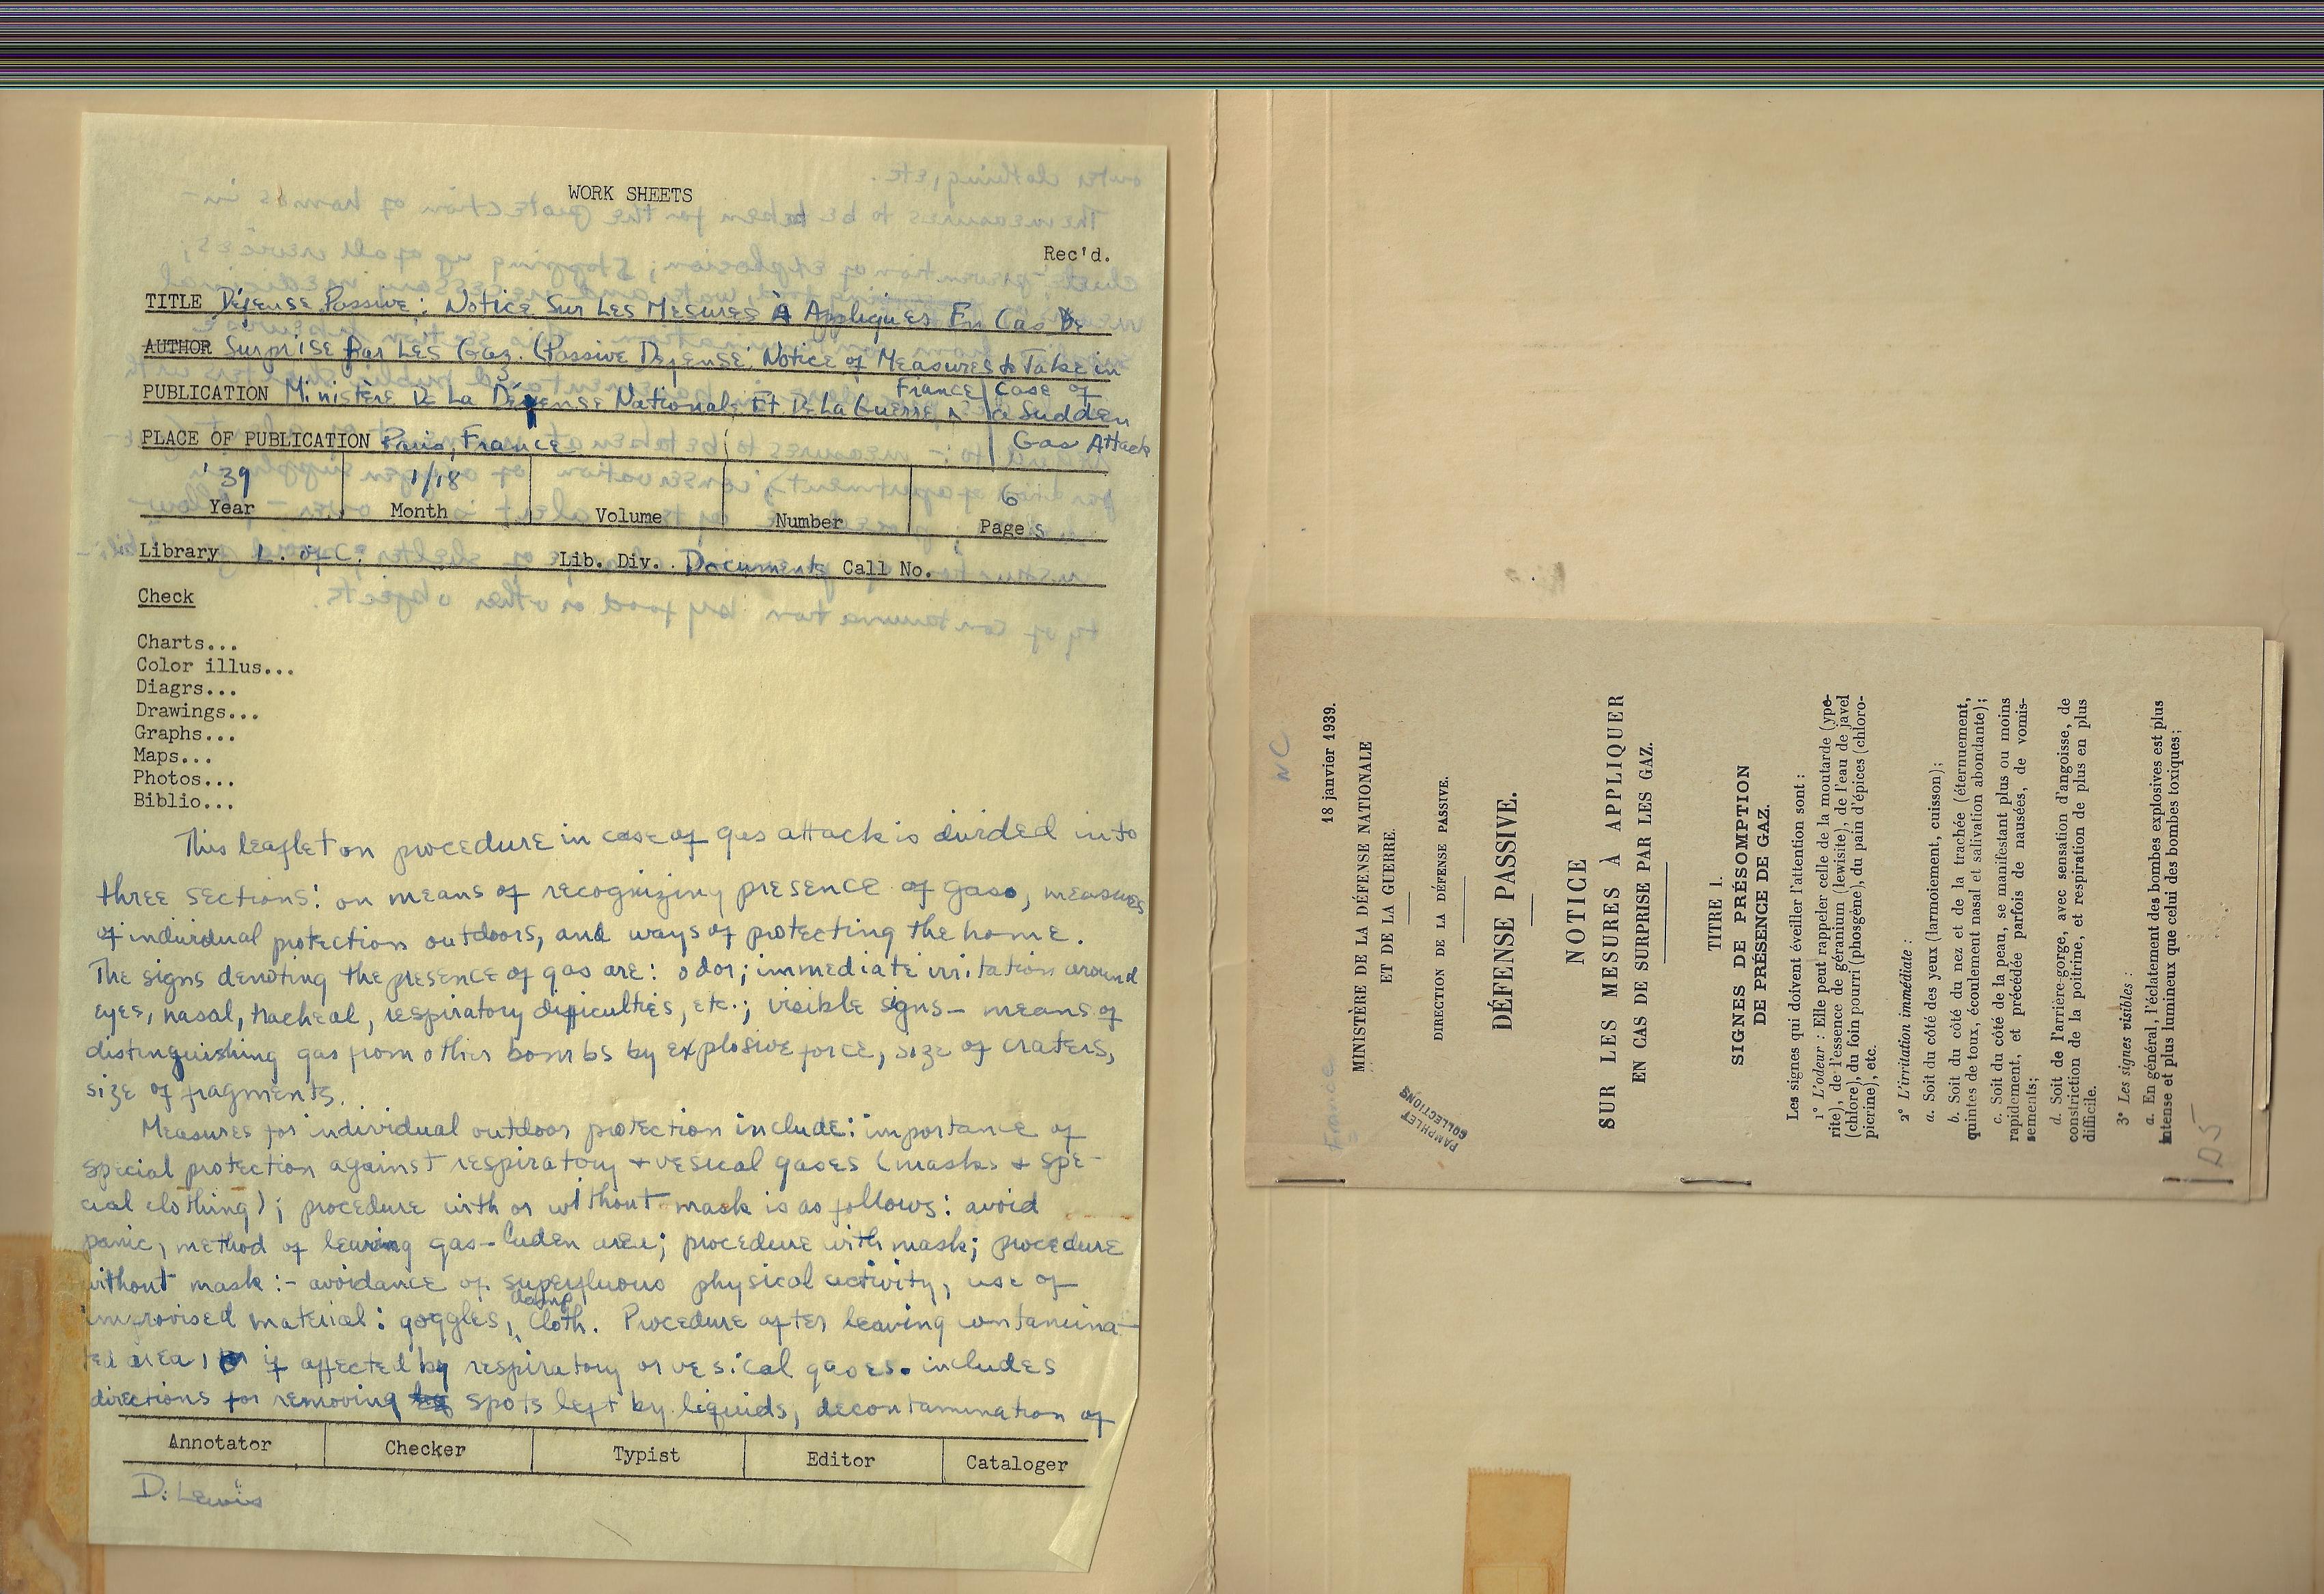 WORK SHEETS
Rec'd.
TITLE Défense Passive: Notice Sur Les Mesures À Appliques En Cas De
AUTHOR Surprise Par Les Gaz. (Passive Defense: Notice of Measures to Take in
PUBLICATION Ministère De La Défense Nationale Et De La Guerre, France Case of
a Sudden
PLACE OF PUBLICATION Paris, France Gas Attack
'39 1/18 6
Year Month Volume Number Pages
Library L. of C. Lib. Div. Documents Call No.
Check
Charts...
Color illus...
Diagrs...
Drawings...
Graphs...
Maps...
Photos...
Biblio...
This leaflet on procedure in case of gas attack is divided into
three sections: on means of recognizing presence of gas, measures
of individual protection outdoors, and ways of protecting the home.
The signs denoting the presence of gas are: odor; immediate irritation around
eyes, nasal, tracheal, respiratory difficulties, etc.; visible signs - means of
distinguishing gas from other bombs by explosive force, size of craters,
size of fragments.
Measures for individual outdoor protection include: importance of
special protection against respiratory + vesical gases (masks + spe-
cial clothing); procedure with or without mask is as follows: avoid
panic, method of leaving gas-laden area; procedure with mask; procedure
without mask:- avoidance of superfluous physical activity, use of
improvised material: goggles, damp cloth. Procedure after leaving contamina-
ted area, if affected by respiratory or vesical gases. includes
directions for removing spots left by liquids, decontamination of
Annotator Checker Typist Editor Cataloger
D. Lewis
NC
18 janvier 1939.
France
MINISTÈRE DE LA DÉFENSE NATIONALE
ET DE LA GUERRE.
PAMPHLET
COLLECTIONS
DIRECTION DE LA DÉFENSE PASSIVE.
DÉFENSE PASSIVE.
NOTICE
SUR LES MESURES À APPLIQUER
EN CAS DE SURPRISE PAR LES GAZ.
TITRE I.
SIGNES DE PRÉSOMPTION
DE PRÉSENCE DE GAZ.
Les signes qui doivent éveiller l'attention sont :
1° L'odeur : Elle peut rappeler celle de la moutarde (ypé-
rite), de l'essence de géranium (lewisite), de l'eau de javel
(chlore), du foin pourri (phosgène), du pain d'épices (chloro-
picrine), etc.
2° L'irritation immédiate :
a. Soit du côté des yeux (larmoiement, cuisson);
b. Soit du côté du nez et de la trachée (éternuement,
quintes de toux, écoulement nasal et salivation abondante);
c. Soit du côté de la peau, se manifestant plus ou moins
rapidement, et précédée parfois de nausées, de vomis-
sements;
d. Soit de l'arrière-gorge, avec sensation d'angoisse, de
constriction de la poitrine, et respiration de plus en plus
difficile.
3° Les signes visibles :
a. En général, l'éclatement des bombes explosives est plus
intense et plus lumineux que celui des bombes toxiques;
D5